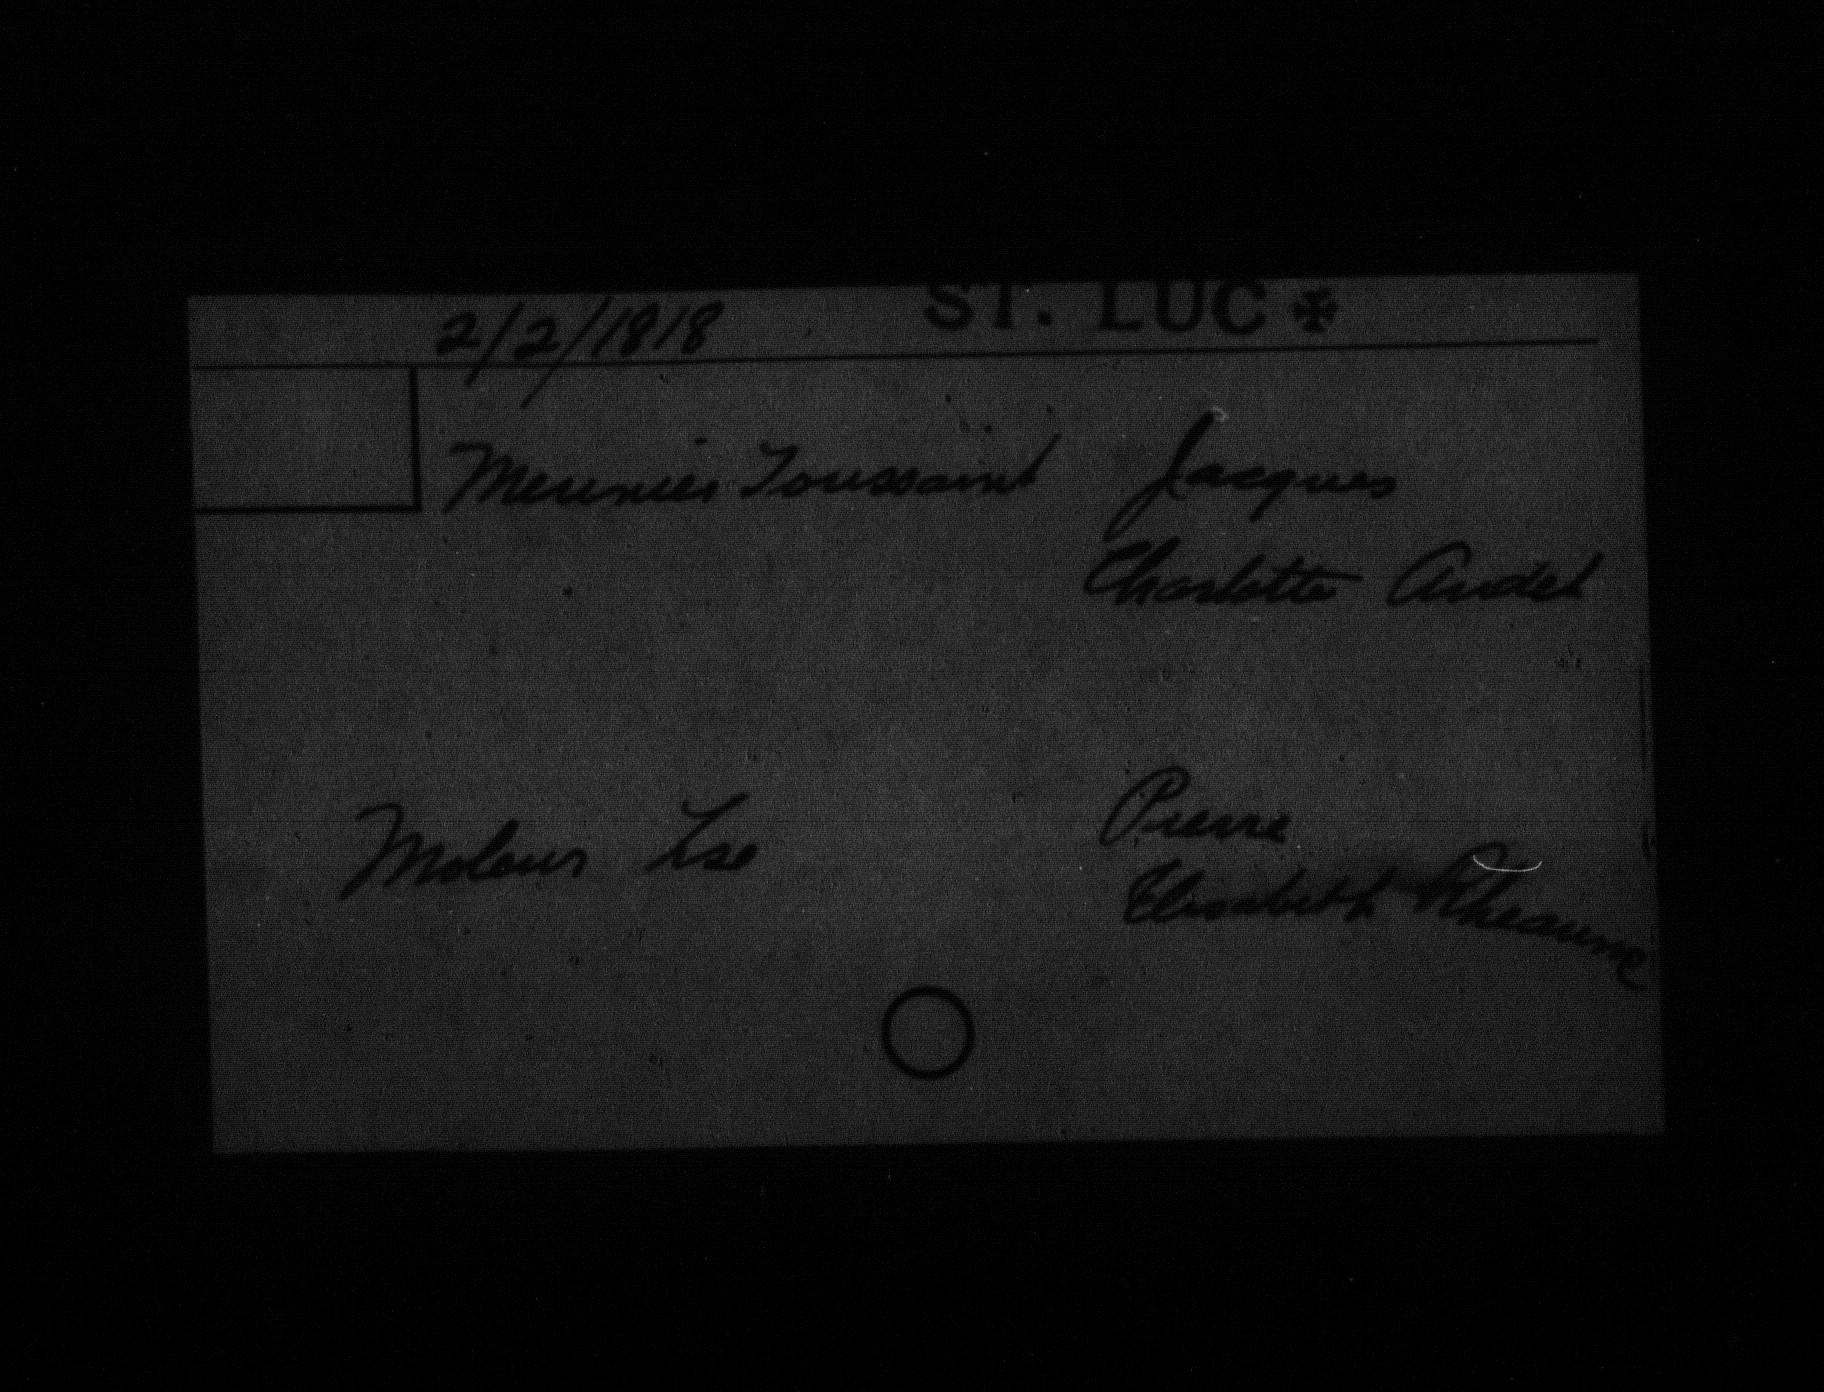 2/2/1818 ST. LUC
Meunier Toussaint Jacques
Charlotte Audet
Moleur Lse Pierre
Elisabeth Rheaume